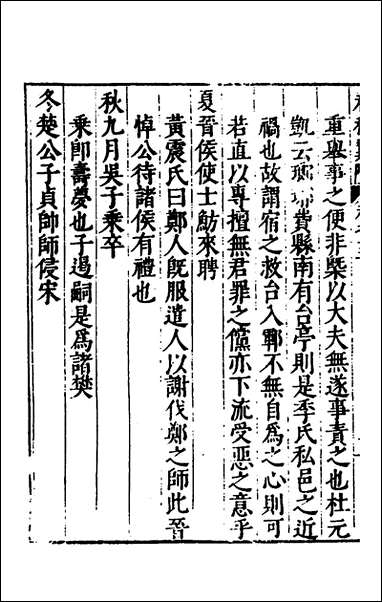 重舉事之便非槩以大夫無遂事責之也杜元
凱云琅琊費縣南有台亭則是季氏私邑之近
禍也故謂宿之救台入鄆不無自為之心則可
若直以專擅無君罪之儻亦下流受惡之意乎
夏晉侯使士魴來聘
黃震氏曰鄭人既服遣人以謝伐鄭之師此晉
悼公待諸侯有禮也
秋九月吳子乘卒
乘卽壽夢也子遏嗣是爲諸樊
冬楚公子貞帥師侵宋